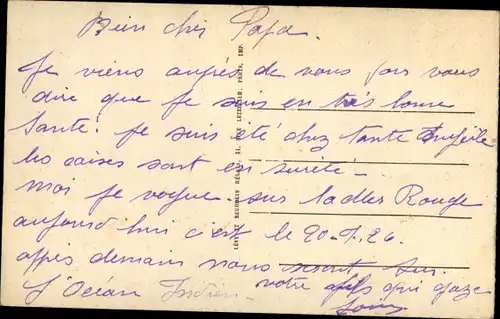 Bien cher Papa.
Je viens auprès de vous pour vous
dire que je suis en très bonne
Santé. je suis été chez tante
les caises sont en sureté -
moi je vogue sur la Mer Rouge
aujourd hui c'est le 20-7-26.
après demain nous seront sur
l'Océan Indien -
votre fils qui
LÉVY ET NEURDEIN RÉUNIS, 44, RUE LETELLIER, PARIS, IMP.